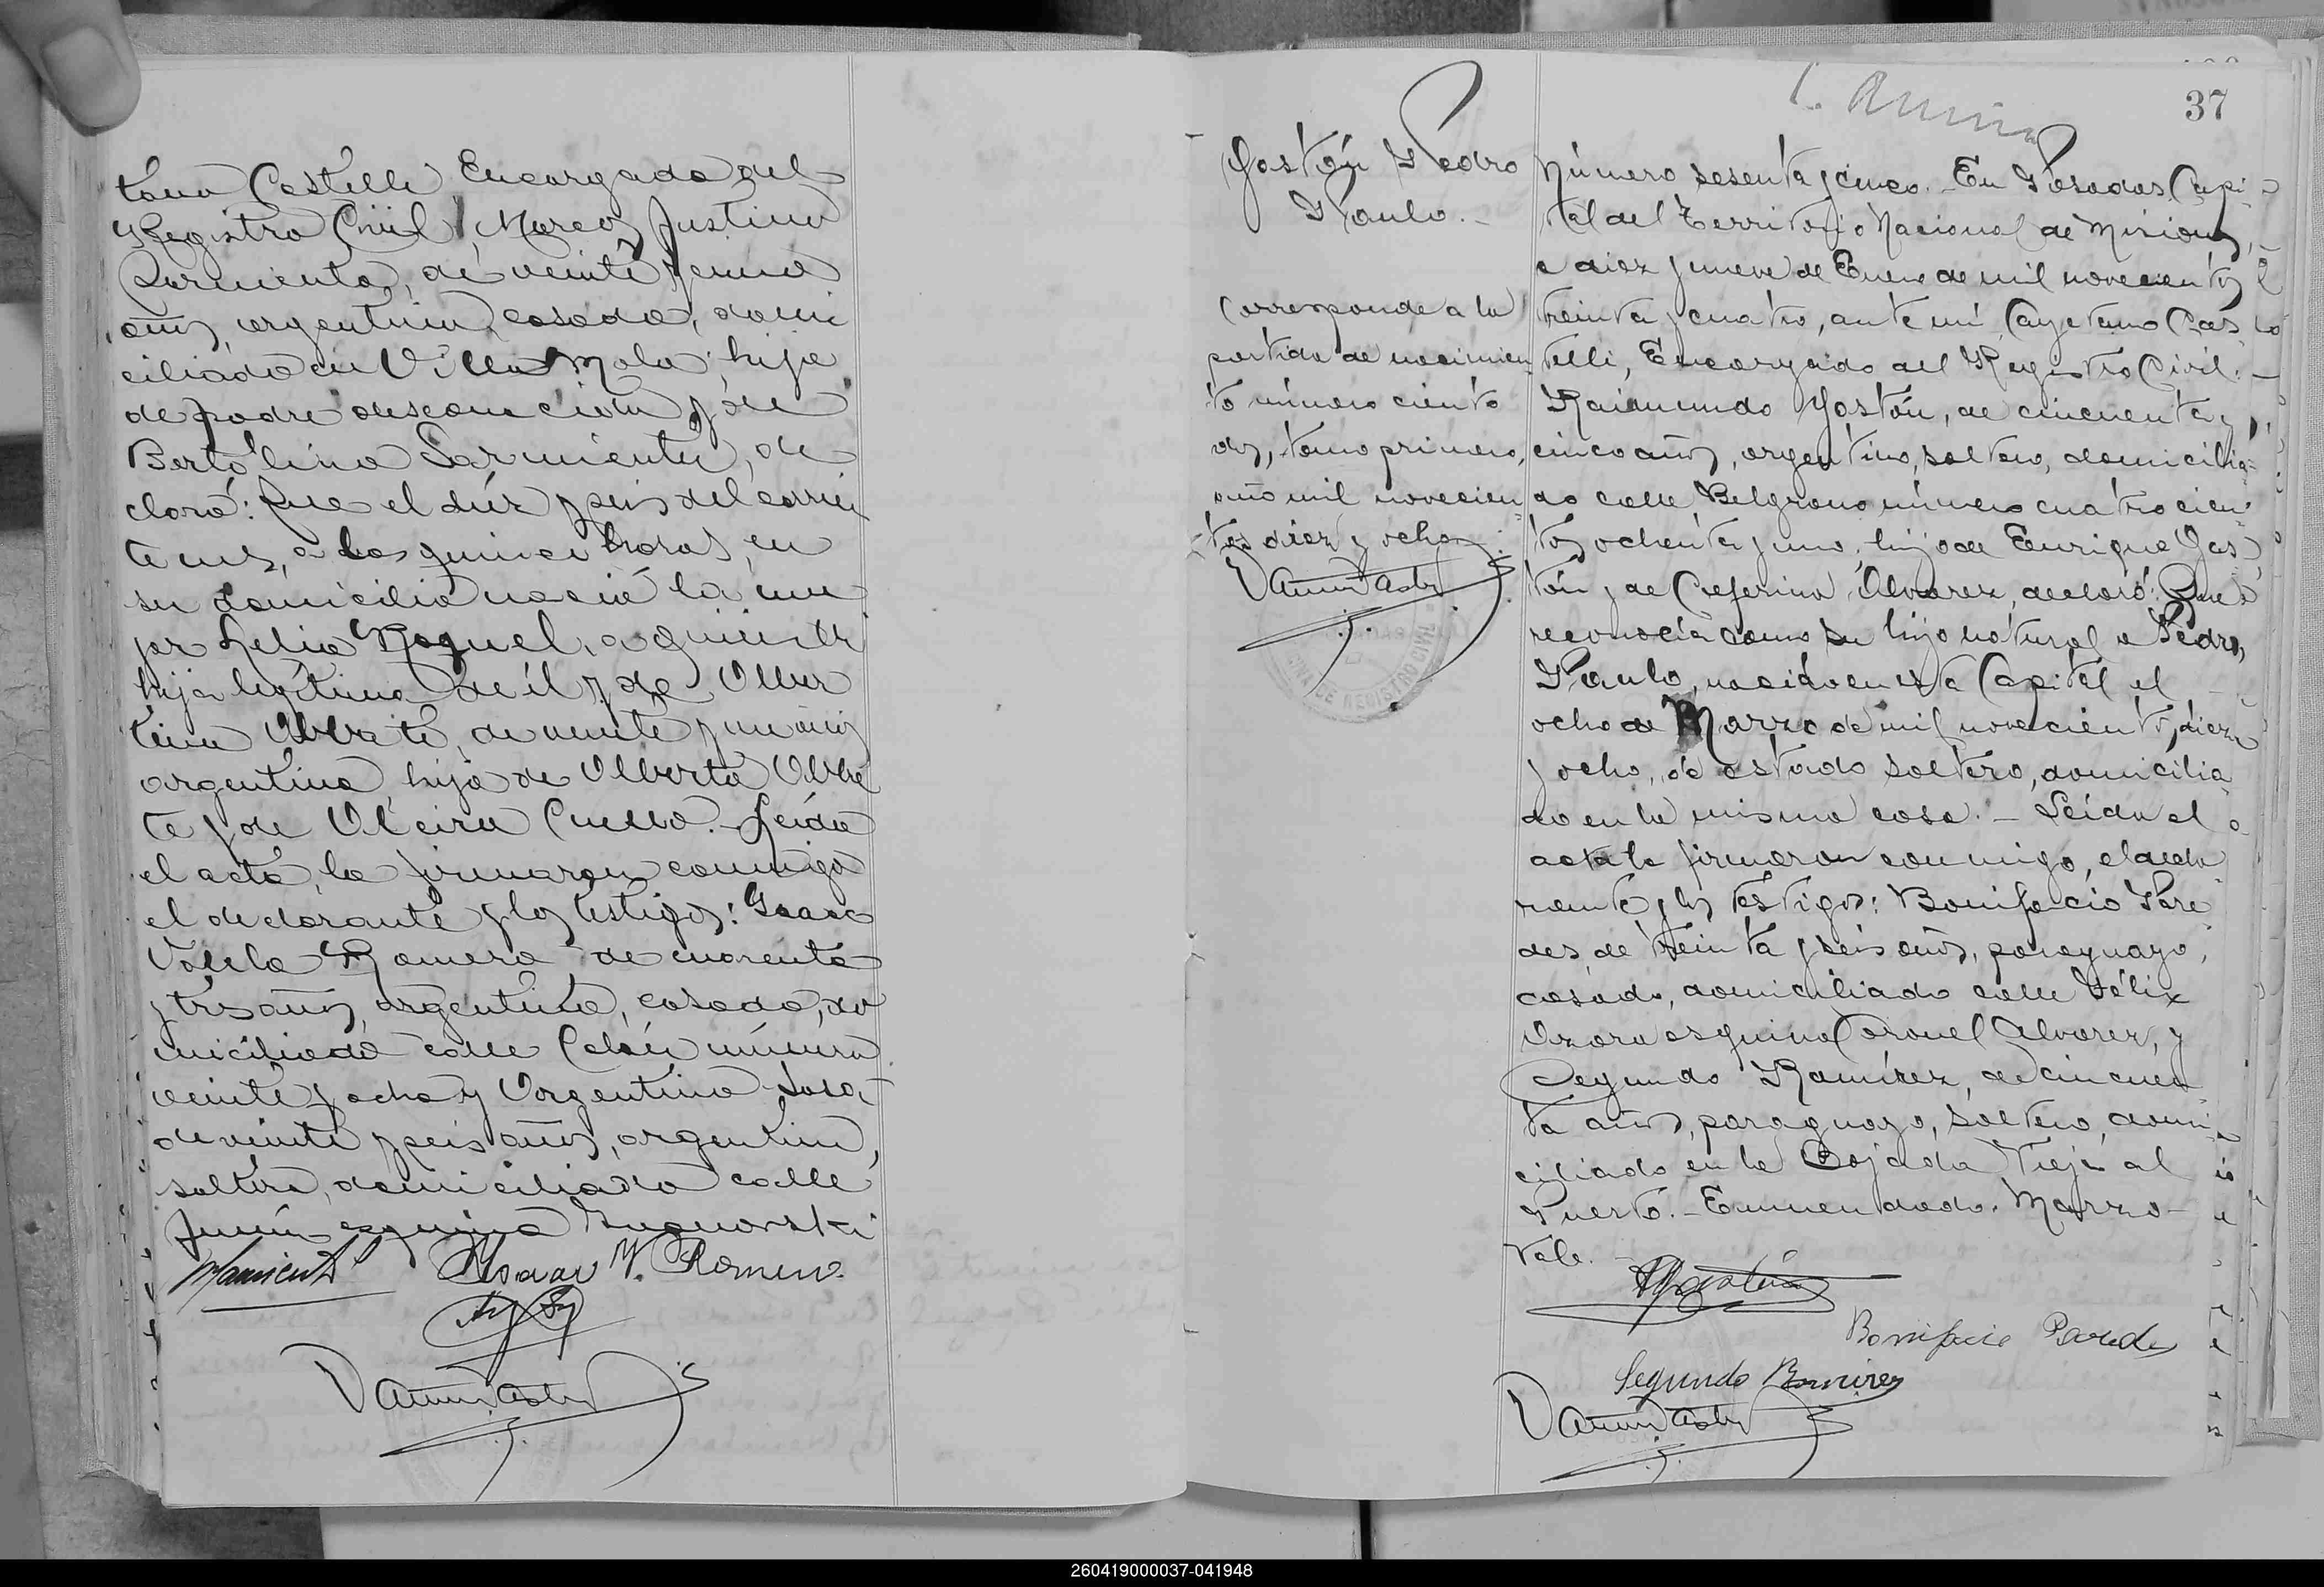 tano Castelli Encargado del
Registro Civil, Marcos Justino
Sarmiento, de veinte y cinco
años, argentino, casado, domi
ciliado en Villa Mola, hijo
de padre desconocido y de
Bertolina Sarmiento, de
claró: Que el diez y seis del corrien
te mes, a las quince horas, en
su domicilio nació la mu
jer Lelia Raquel,
hija legítima de él y de
de veinte y un años
argentina, hija de Alberto
te y de Cuello. Leída
el acta, la firmaron conmigo
el declarante y los testigos: Isaac
Varela Romero de cuarenta
y tres años, argentino, casado, do
miciliado calle Colón número
veinte y ocho y Argentino Sosa,
de veinte y seis años, argentino,
soltero, domiciliado calle
Junín esquina
Sarmiento Isaac V. Romero
Gastón Pedro
Paulo.-
Corresponde a la
partida de nacimien
to número ciento
dos, tomo primero,
año mil novecien
tos diez y ocho
37
Número sesenta y cinco.- En Posadas, Capi-
tal del Territorio Nacional de Misiones,
a diez y nueve de Enero de mil novecientos
treinta y cuatro, ante mí, Cayetano Cas
telli, Encargado del Registro Civil.-
Raimundo Gastón, de cincuenta y
cinco años, argentino, soltero, domicilia-
do calle Belgrano número cuatrocien-
tos ochenta y uno, hijo de Enrique Gas
tón y de Ceferina Alvarez, declaró: Que
reconocía como su hijo natural a Pedro
Paulo, nacido en esta Capital el
ocho de Marzo de mil novecientos diez
y ocho, de estado soltero, domicilia
do en la misma casa.- Leída el
acta la firmaron conmigo, el decla
rante y los testigos: Bonifacio Pare
des, de treinta y seis años, paraguayo,
casado, domiciliado calle Félix
Azara esquina Coronel Alvarez, y
Segundo Ramírez, de cincuen
ta años, paraguayo, soltero, domi
ciliado en la Bajada Vieja al
Puerto.- Enmendado. Marzo-
Vale.
RGastón
Bonifacio Paredes
Segundo Ramirez
260419000037-041948